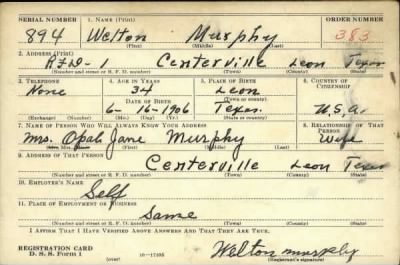 SERIAL NUMBER 1. NAME (Print) ORDER NUMBER
894 Welton Murphy 383
(First) (Middle) (Last)
2. ADDRESS (Print)
R.F.D-1 Centerville Leon Texas
(Number and street or R. F. D. number) (Town) (County) (State)
3. TELEPHONE 4. AGE IN YEARS 5. PLACE OF BIRTH 6. COUNTRY OF CITIZENSHIP
None 34 Leon
DATE OF BIRTH (Town or county)
6-16-1906 Texas U.S.A.
(Exchange) (Number) (Mo.) (Day) (Yr.) (State or country)
7. NAME OF PERSON WHO WILL ALWAYS KNOW YOUR ADDRESS 8. RELATIONSHIP OF THAT PERSON
Mrs. Opal Jane Murphy Wife
(Mr., Mrs., Miss) (First) (Middle) (Last)
9. ADDRESS OF THAT PERSON
Centerville Leon Texas
(Number and street or R. F. D. number) (Town) (County) (State)
10. EMPLOYER'S NAME
Self
11. PLACE OF EMPLOYMENT OR BUSINESS
Same
(Number and street or R. F. D. number) (Town) (County) (State)
I AFFIRM THAT I HAVE VERIFIED ABOVE ANSWERS AND THAT THEY ARE TRUE.
REGISTRATION CARD
D. S. S. Form 1 (over) 16-17105 Welton Murphy
(Registrant's signature)